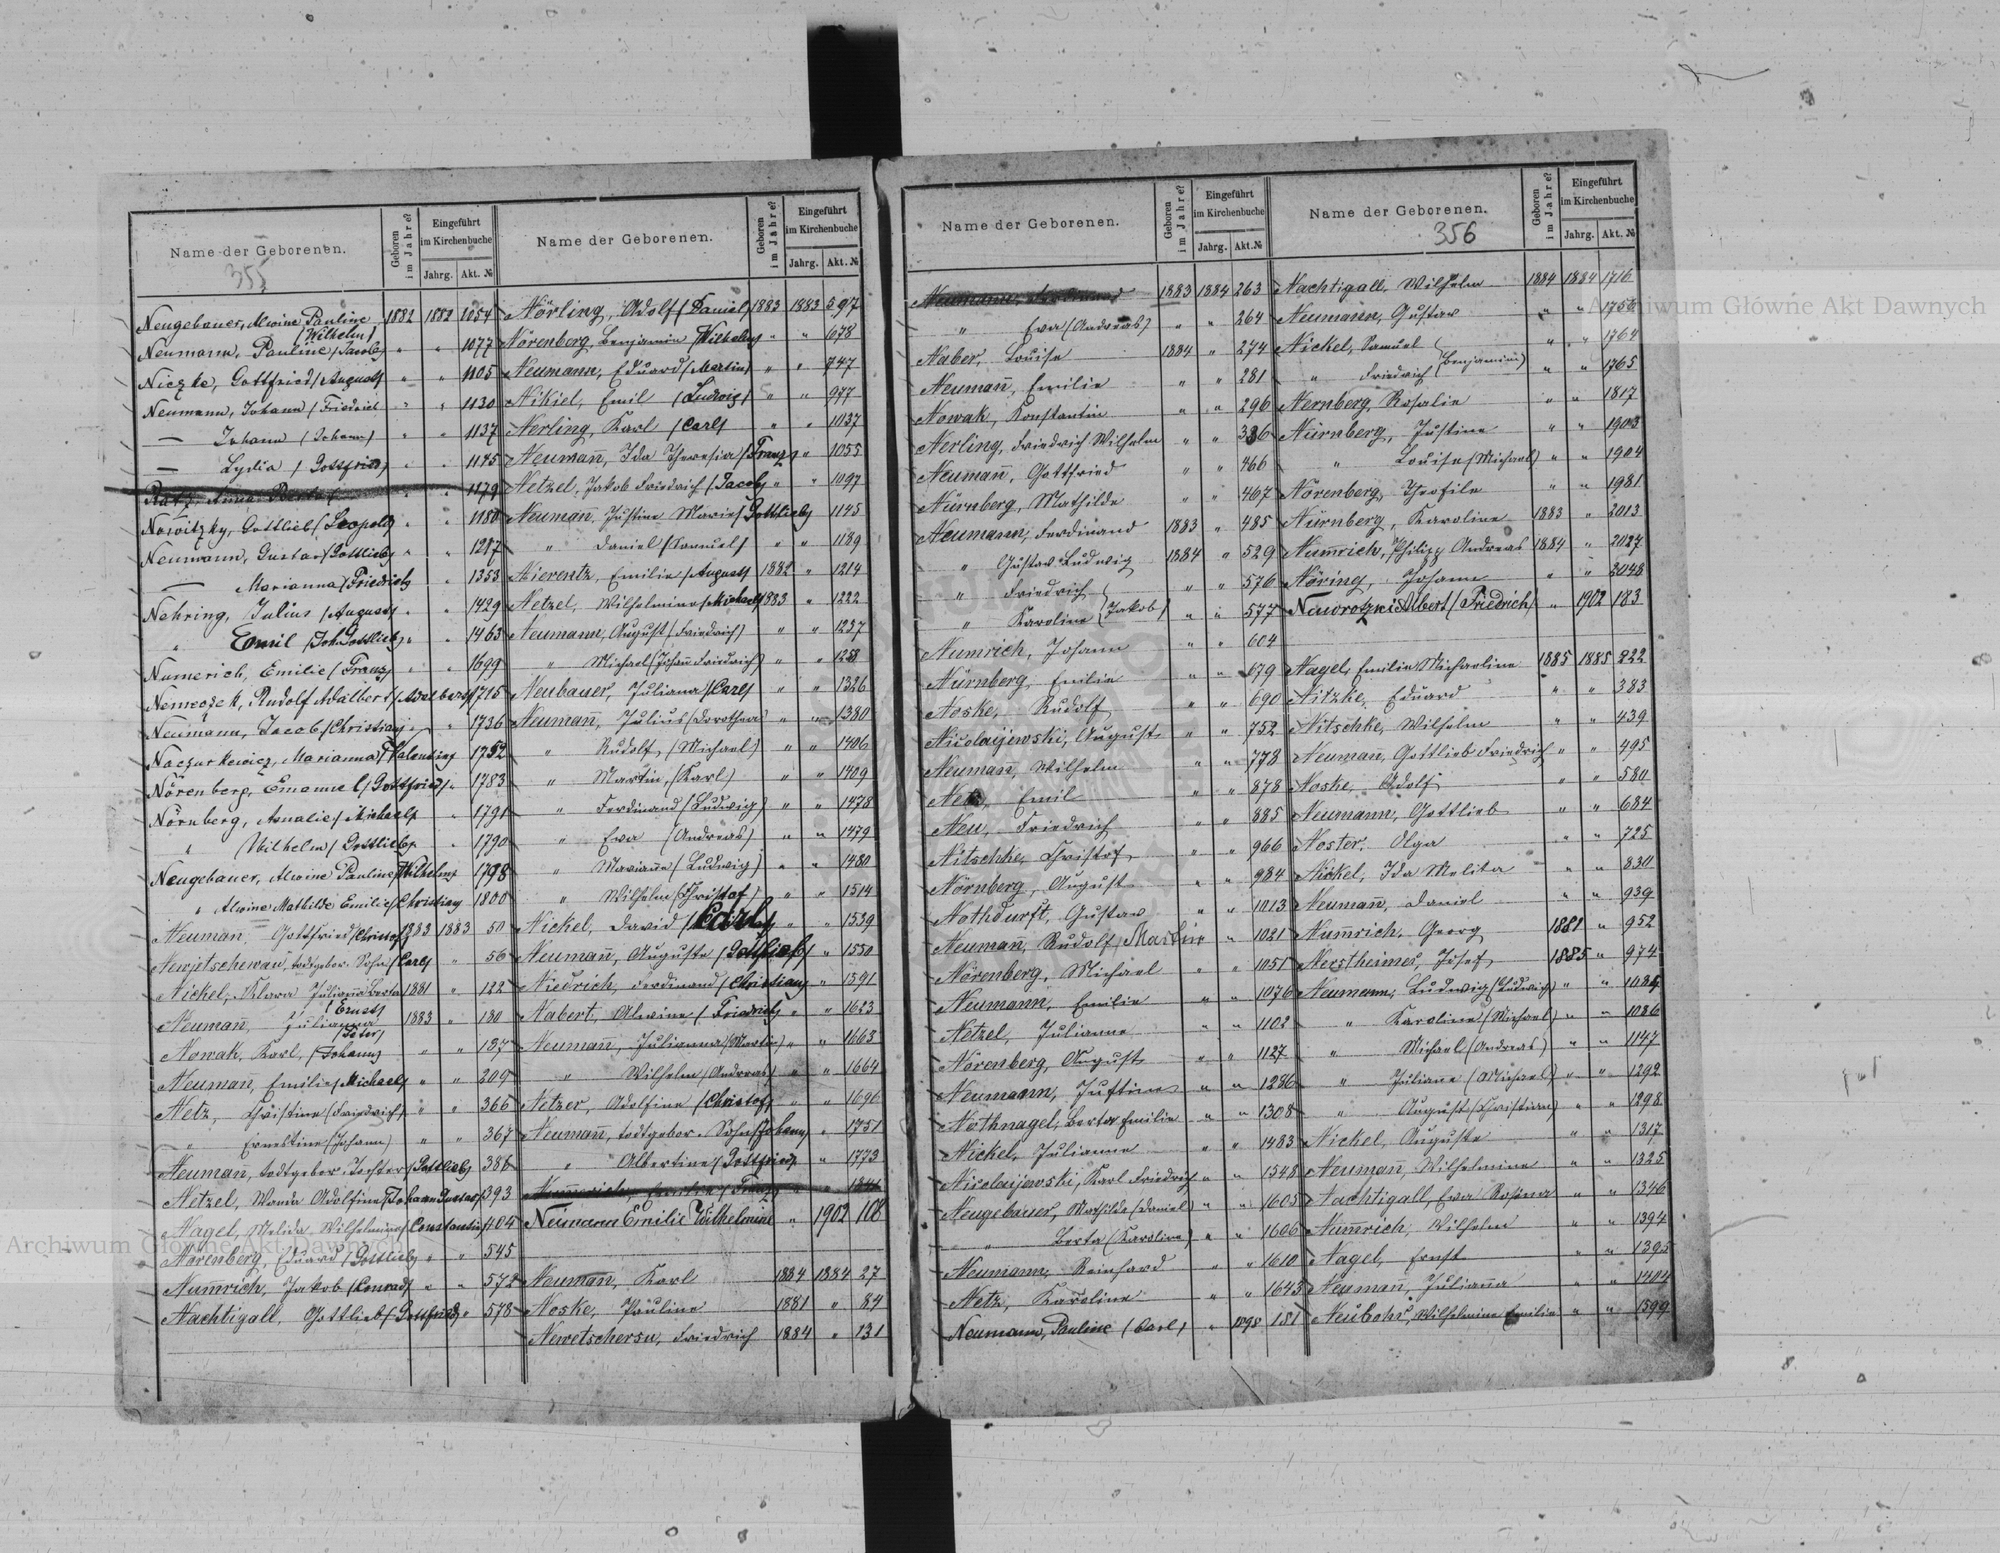 Name der Geborenen.
Geboren im Jahre?
Eingeführt im Kirchenbuche
Jahrg.
Akt. №
355
Neugebauer, Alwine Pauline (Wilhelm) 1882 1882 1054
Neumann, Pauline (Jacob) " " 1077
Niezke, Gottfried (August) " " 1105
Neumann, Johann (Friedrich " " 1130
— Johann (Johann) " " 1137
— Lydia (Gottfried) " " 1175
Ratz, Anna Berta " 1179
Nowitzky, Gottlieb (Leopold) " " 1180
Neumann, Gustav (Gottlieb) " " 1217
— Marianna (Friedrich) " 1353
Nehring, Julius (August) " " 1429
" Emil (Joh. Gottlieb) " " 1463
Numerich, Emilie (Franz) " " 1699
Nemeczek, Rudolf Adalbert (Adelbert) 1715
Neumann, Jacob (Christian) " " 1736
Naczurkewicz, Marianna (Valentin) 1752
Nörenberg, Emanuel (Gottfried) " 1783
Nörnberg, Amalie (Michael) " 1791
" Wilhelm (Gottlieb) " 1790
Neugebauer, Alwine Pauline (Wilhelm) 1798
" Alwine Mathilde Emilie (Christian) 1800
Neuman, Gottfried (Christof) 1883 1883 50
todtgebor. Sohn (Carl) " 56
Nickel, Klara Julianna Berta (Ernst) 1881 " 122
Neuman̄, Julianna (Peter) 1883 " 130
Nowak, Karl, (Johann) " " 137
Neuman̄, Emilie (Michael) " " 209
Netz, Christine (Friedrich) " " 366
" Ernestine (Johann) " " 367
Neuman̄, todtgebor. Tochter (Gottlieb) 386
Netzel, Wanda Adolfine (Johann Gustav) 393
Nagel, Melida Wilhelmine (Constantin) 404
Norenberg, Eduard (Gottlieb) " " 545
Num̄rich, Jakob (Conrad) " " 572
Nachtigall, Gottlieb (Gottfried) " 578
Name der Geborenen.
Geboren im Jahre?
Eingeführt im Kirchenbuche
Jahrg.
Akt. №
Nörling, Adolf (Daniel) 1883 1883 597
Nörenberg, Benjamin (Wilhelm) " " 678
Neumann, Eduard (Martin) " " 747
Nikiel, Emil (Ludwig) " " 977
Nerling, Karl (Carl) " " 1037
Neuman̄, Ida Theresia (Franz) " 1055
Netzel, Jakob Friedrich (Jacob) " " 1097
Neuman̄, Justine Marie (Gottlieb) 1145
" Daniel (Samuel) " " 1189
Nierentz, Emilie (August) 1882 " 1214
Netzel, Wilhelmine (Michael) 1883 " 1222
Neumann, August (Friedrich) " " 1237
" Michael (Johan̄ Friedrich) " " 1258
Neubauer, Juliana (Carl) " " 1326
Neuman̄, Julius (Dorothea) " " 1380
" Rudolf, (Michael) " " 1406
" Martin, (Karl) " " 1409
" Ferdinand (Ludwig) " " 1478
" Ewa (Andreas) " " 1479
" Marian̄e (Ludwig) " " 1480
" Wilhelm (Christof) " " 1514
Nickel, David (Carl) " " 1539
Neuman̄, Auguste (Gottlieb) " 1550
Niedrich, Ferdinand (Christian) " 1591
Nabert, Alwine (Friedrich) " " 1623
Neuman̄, Julianna (Martin) " " 1663
" Wilhelm (Andreas) " " 1664
Netzer, Adolfine (Christof) " " 1696
Neuman̄, todtgebor. Sohn (Johann) " 1751
" Albertine (Gottfried) " 1773
Num̄rich, (Franz) " " 1811
Neimann Emilie Wilhelmine " 1902 168
Neuman̄, Karl 1884 1884 27
Noske, Pauline 1881 " 84
Newetschersu, Friedrich 1884 " 131
Name der Geborenen.
Geboren im Jahre?
Eingeführt im Kirchenbuche
Jahrg.
Akt. №
Neumann, Ferdinand 1883 1884 263
" Ewa (Andreas) " " 264
Naber, Louise 1884 " 274
Neuman̄, Emilie " " 281
Nowak, Konstantin " " 296
Nerling, Friedrich Wilhelm " " 336
Neuman̄, Gottfried " " 466
Nürnberg, Mathilde " " 467
Neumann, Ferdinand 1883 " 485
" Gustav Ludwig 1884 " 529
" Friedrich " " 576
" Karoline (Jakob) " " 577
Numrich, Johann " " 604
Nürnberg, Emilie " " 679
Noske, Rudolf " " 690
Nicolaijewski, August " " 752
Neuman̄, Wilhelm " " 778
Neu, Emil " " 878
Neu, Friedrich " " 885
Nitschke, Christof " " 966
Nörnberg, August " " 984
Nothdurft, Gustav " " 1013
Neuman̄, Rudolf, Martin " 1021
Nörenberg, Michael " " 1051
Neumann, Emilie " " 1076
Netzel, Julianne " " 1102
Nörenberg, August " " 1127
Neumann, Justine " " 1286
Nothnagel, Berta Emilie " " 1308
Nickel, Julianne " " 1483
Nicolaijewski, Karl Friedrich " " 1548
Neugebauer, Mathilde (Daniel) " " 1605
" Berta (Karoline) " " 1606
Neumann, Reinhard " " 1610
Netz, Karoline " " 1643
Neumann, Pauline (Carl) " 1898 181
Name der Geborenen.
Geboren im Jahre?
Eingeführt im Kirchenbuche
Jahrg.
Akt. №
356
Nachtigall, Wilhelm 1884 1884 1716
Neumann, Gustav " " 1756
Nickel, Samuel " " 1764
" Friedrich (Benjamin) " " 1765
Nernberg, Rosalie " " 1817
Nürnberg, Justine " " 1903
" Louise (Michael) " " 1904
Nörenberg, Theofile " " 1981
Nürnberg, Karoline 1883 " 2013
Num̄rich, Philipp Andreas 1884 " 2027
Nöring, Johann " " 2048
Naworotzki Albert (Friedrich) " 1902 183
Nagel, Emilie Michaeline 1885 1885 222
Nitzke, Eduard " " 383
Nitschke, Wilhelm " " 439
Neuman̄, Gottlieb Friedrich " " 495
Noske, Adolf " " 580
Neumann, Gottlieb " " 684
Noster, Olga " " 725
Nickel, Ida Melita " " 830
Neuman̄, Daniel " " 939
Num̄rich, Georg 1881 " 952
Nerstheimer, Josef 1885 " 974
Neumann, Ludwig (Ludwig) " " 1084
" Karoline (Michael) " " 1086
" Michael (Andreas) " " 1147
" Juliane (Michael) " " 1292
" August (Christian) " " 1298
Nickel, Auguste " " 1317
Neuman̄, Wilhelmine " " 1325
Nachtigall, Ewa Rosina " " 1346
Num̄rich, Wilhelm " " 1394
Nagel, Ernst " " 1395
Neuman̄, Julian̄a " " 1404
Wilhelmine Emilie " " 1599
Archiwum Główne Akt Dawnych
Archiwum Główne Akt Dawnych